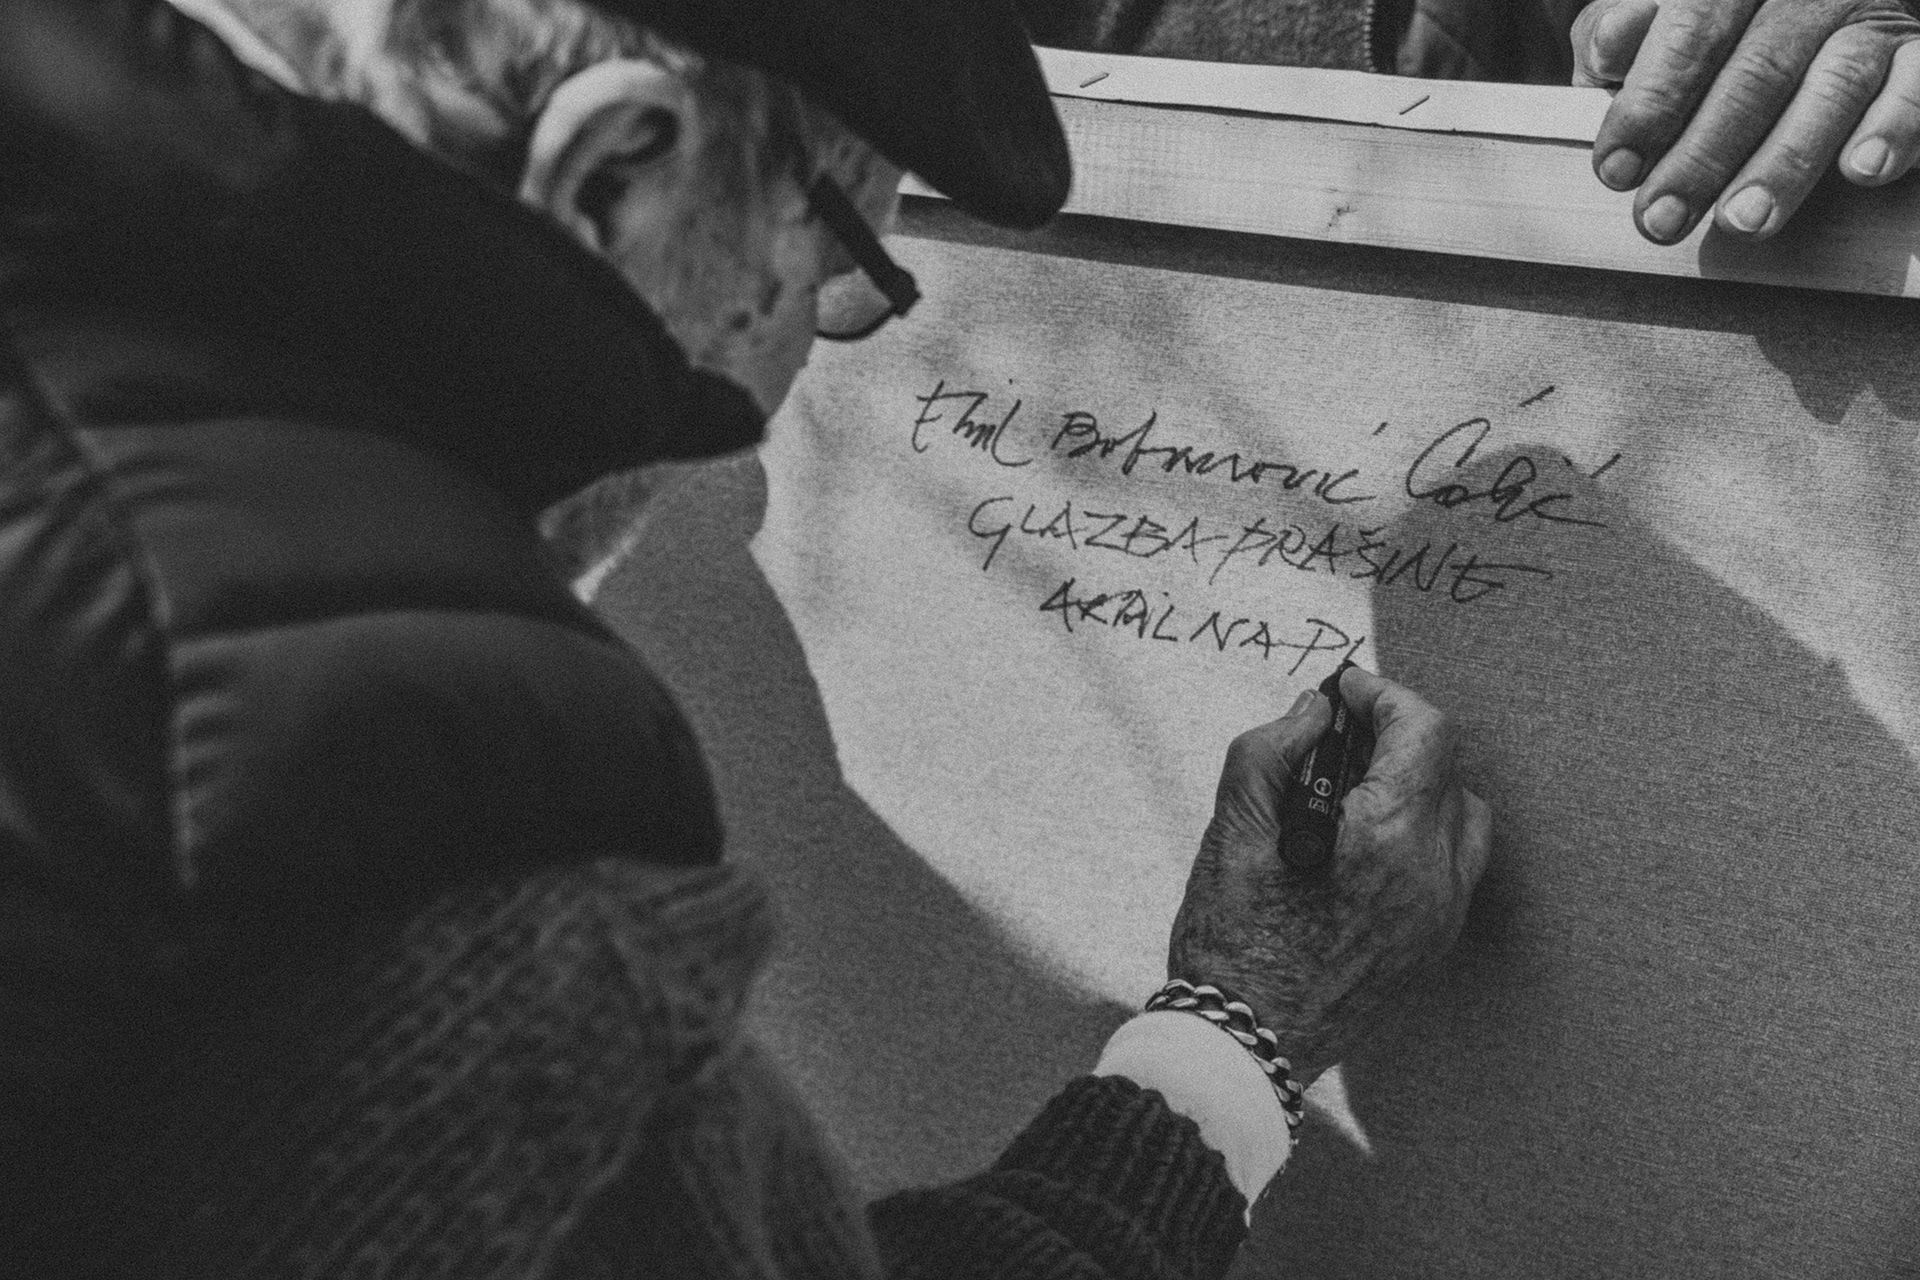 Emil Bobanović Čolić
GLAZBA PRAŠINE
AKRIL NA PL